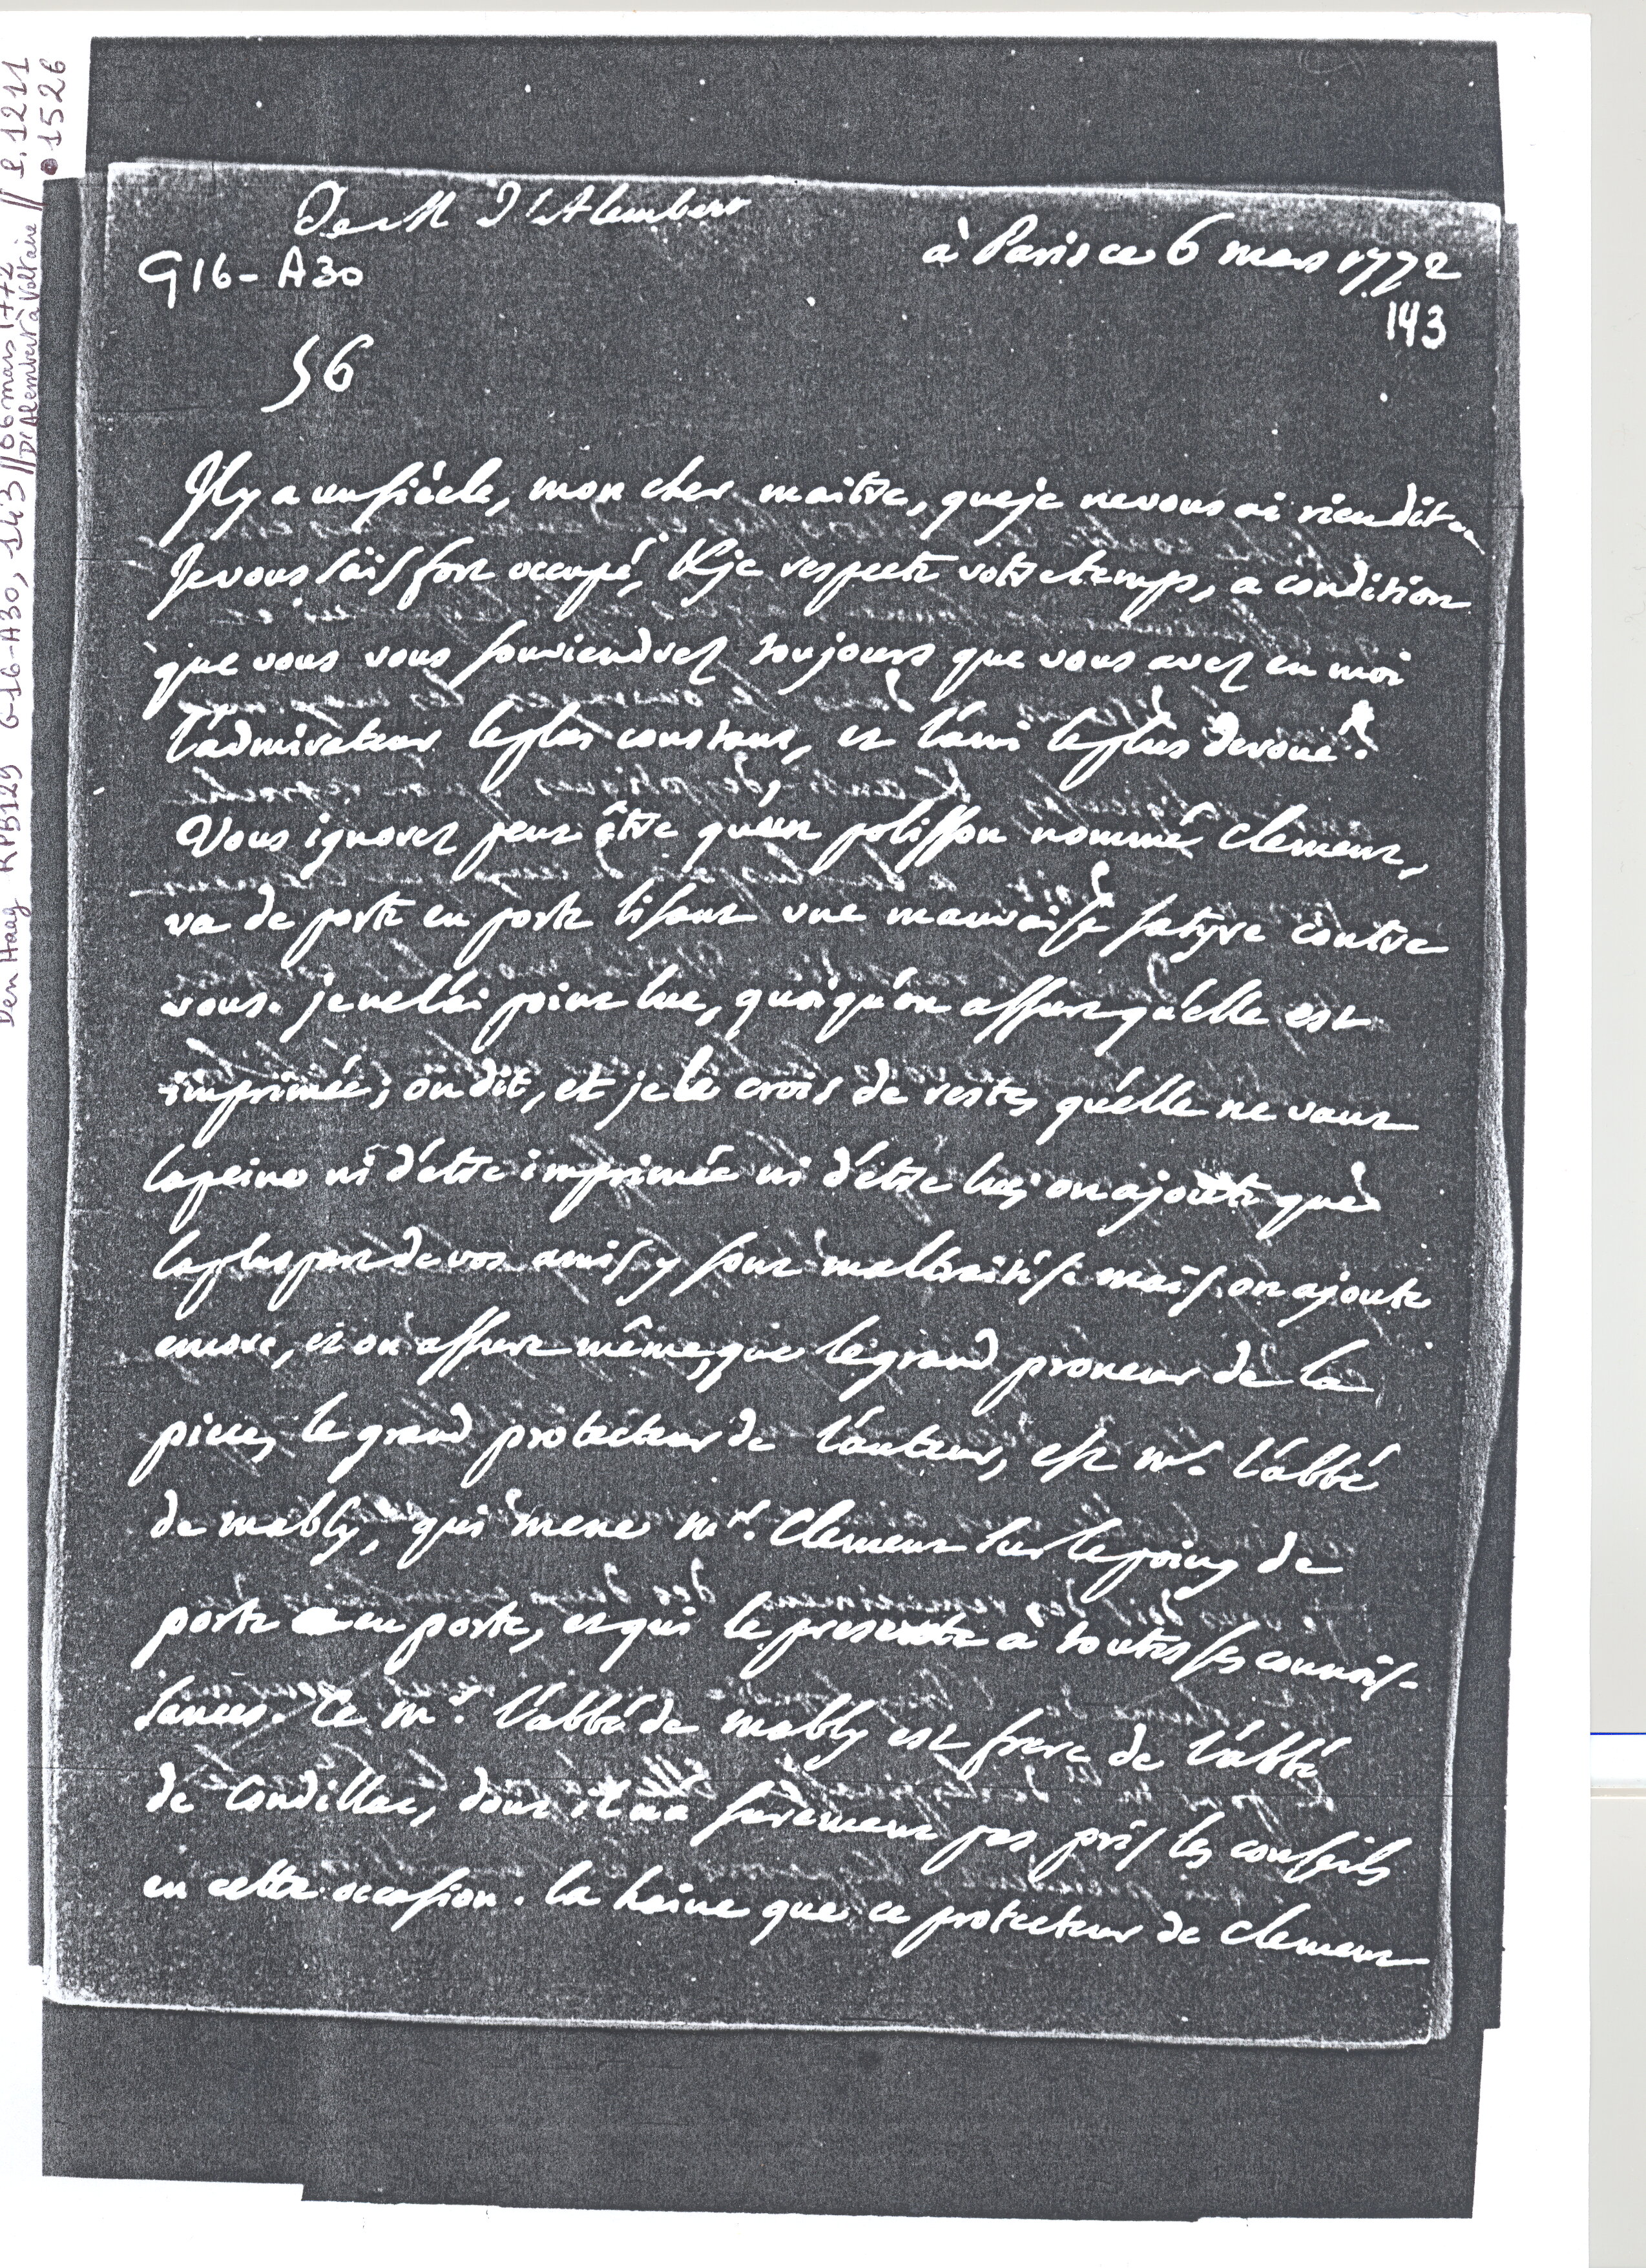 De M D'Alembert
à Paris ce 6 mars 1772
G16-A30
143
56
Il y a un siécle, mon cher maitre, que je ne vous ai rien dit.
Je vous sais fort occupé, & je respecte votre temps, a condition
que vous vous souviendrez toujours que vous avez en moi
l'admirateur le plus constant, et l'ami le plus devoué.
Vous ignorez peut être qu'un polisson nommé Clement,
va de porte en porte lisant une mauvaise satyre contre
vous. je ne l'ai point lue, quoiqu'on assure qu'elle est
imprimée; on dit, et je le crois de reste, qu'elle ne vaut
la peine ni d'être imprimée ni d'être lue; on ajoute que
la plus part de vos amis y sont maltraités: mais on ajoute
encore, et on assure même, que le grand proneur de la
piece, le grand protecteur de l'auteur, est mr. l'abbé
de mably, qui mene mr. Clement sur le poing de
porte en porte, et qui le presente à toutes ses connois-
sances. Ce mr. l'abbé de mably est frere de l'abbé
de Condillac, dont il n'a surement pas pris les conseils
en cette occasion. la haine que ce protecteur de Clement
Den Haag RPB129 G-16-A30, 143 // 06 mars 1772 // P. 1211
D'Alembert à Voltaire // 1526